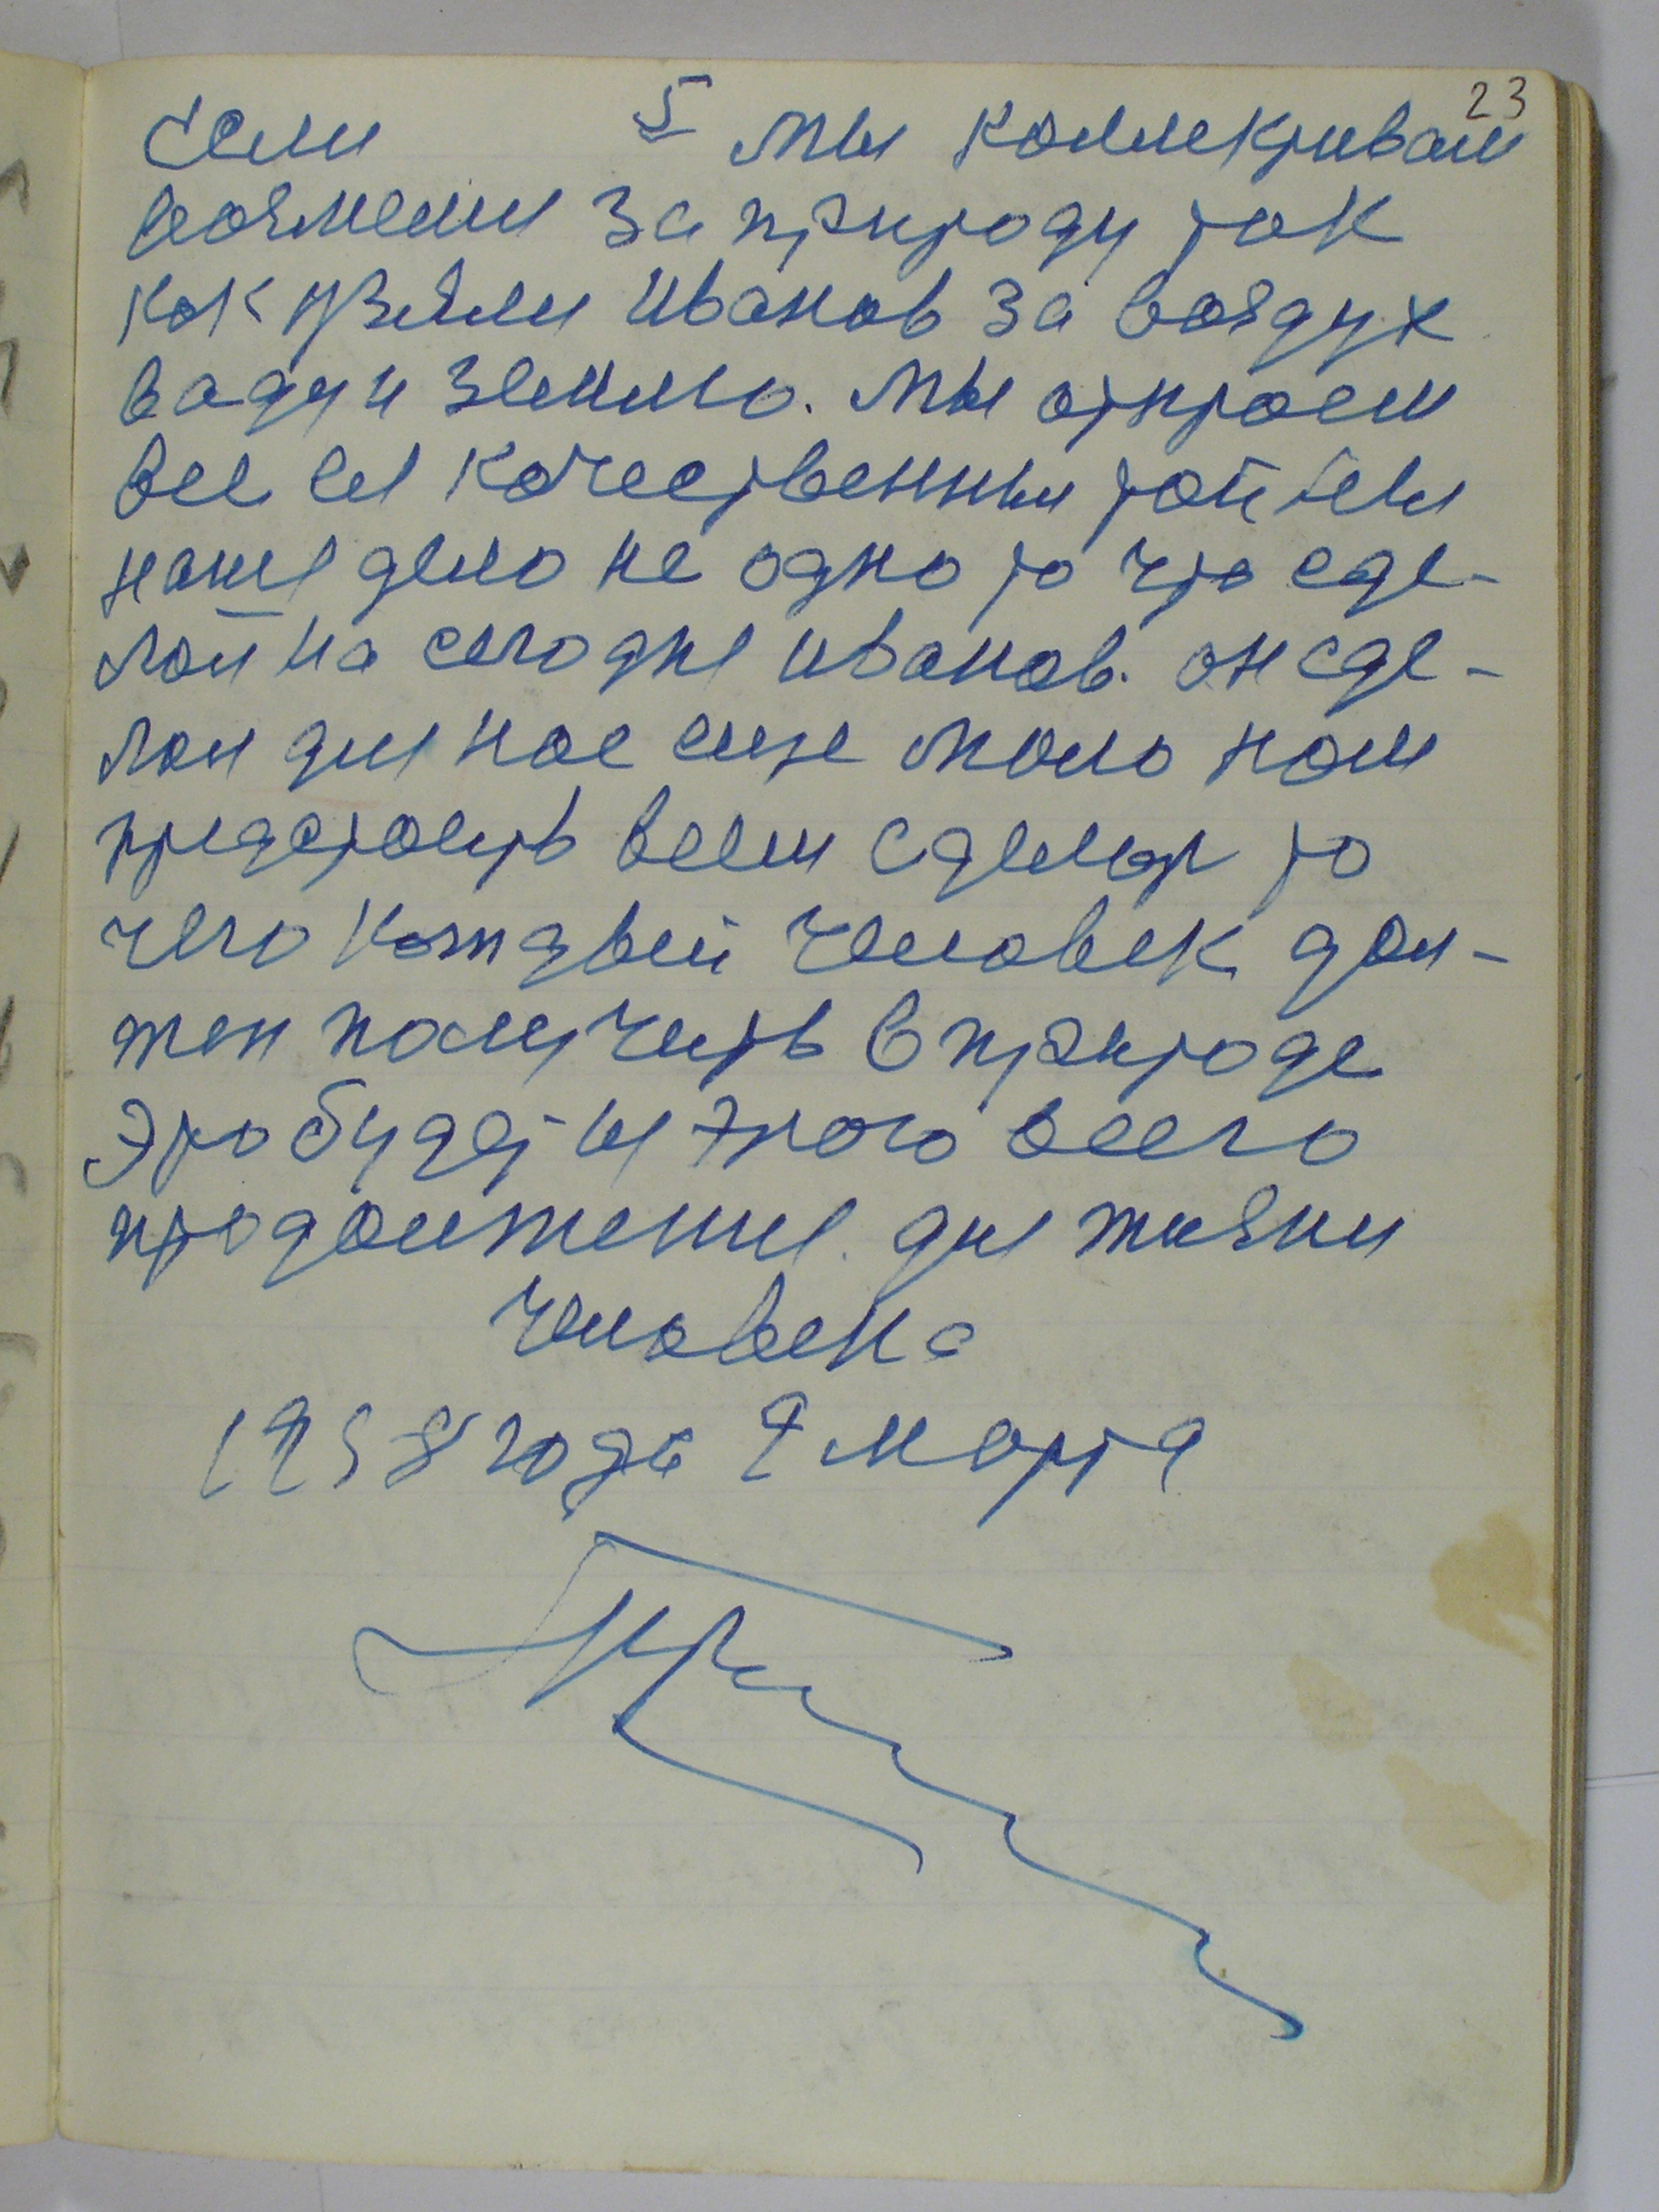 23
Если 5 мы коллективом
возмемся за природу так
как взялся Иванов за воздух
ваду и землю. Мы откроем
все ея качественныи тайны
наше дело не одно то что сде-
лал на сегодне Иванов. он сде-
лал для нас еще мало нам
предстоить всем сделат то
чего каждый человек дол-
жен получить в природе
Это будет из этого всего
продолжение. для жизни
человека
1958 года 9 марта